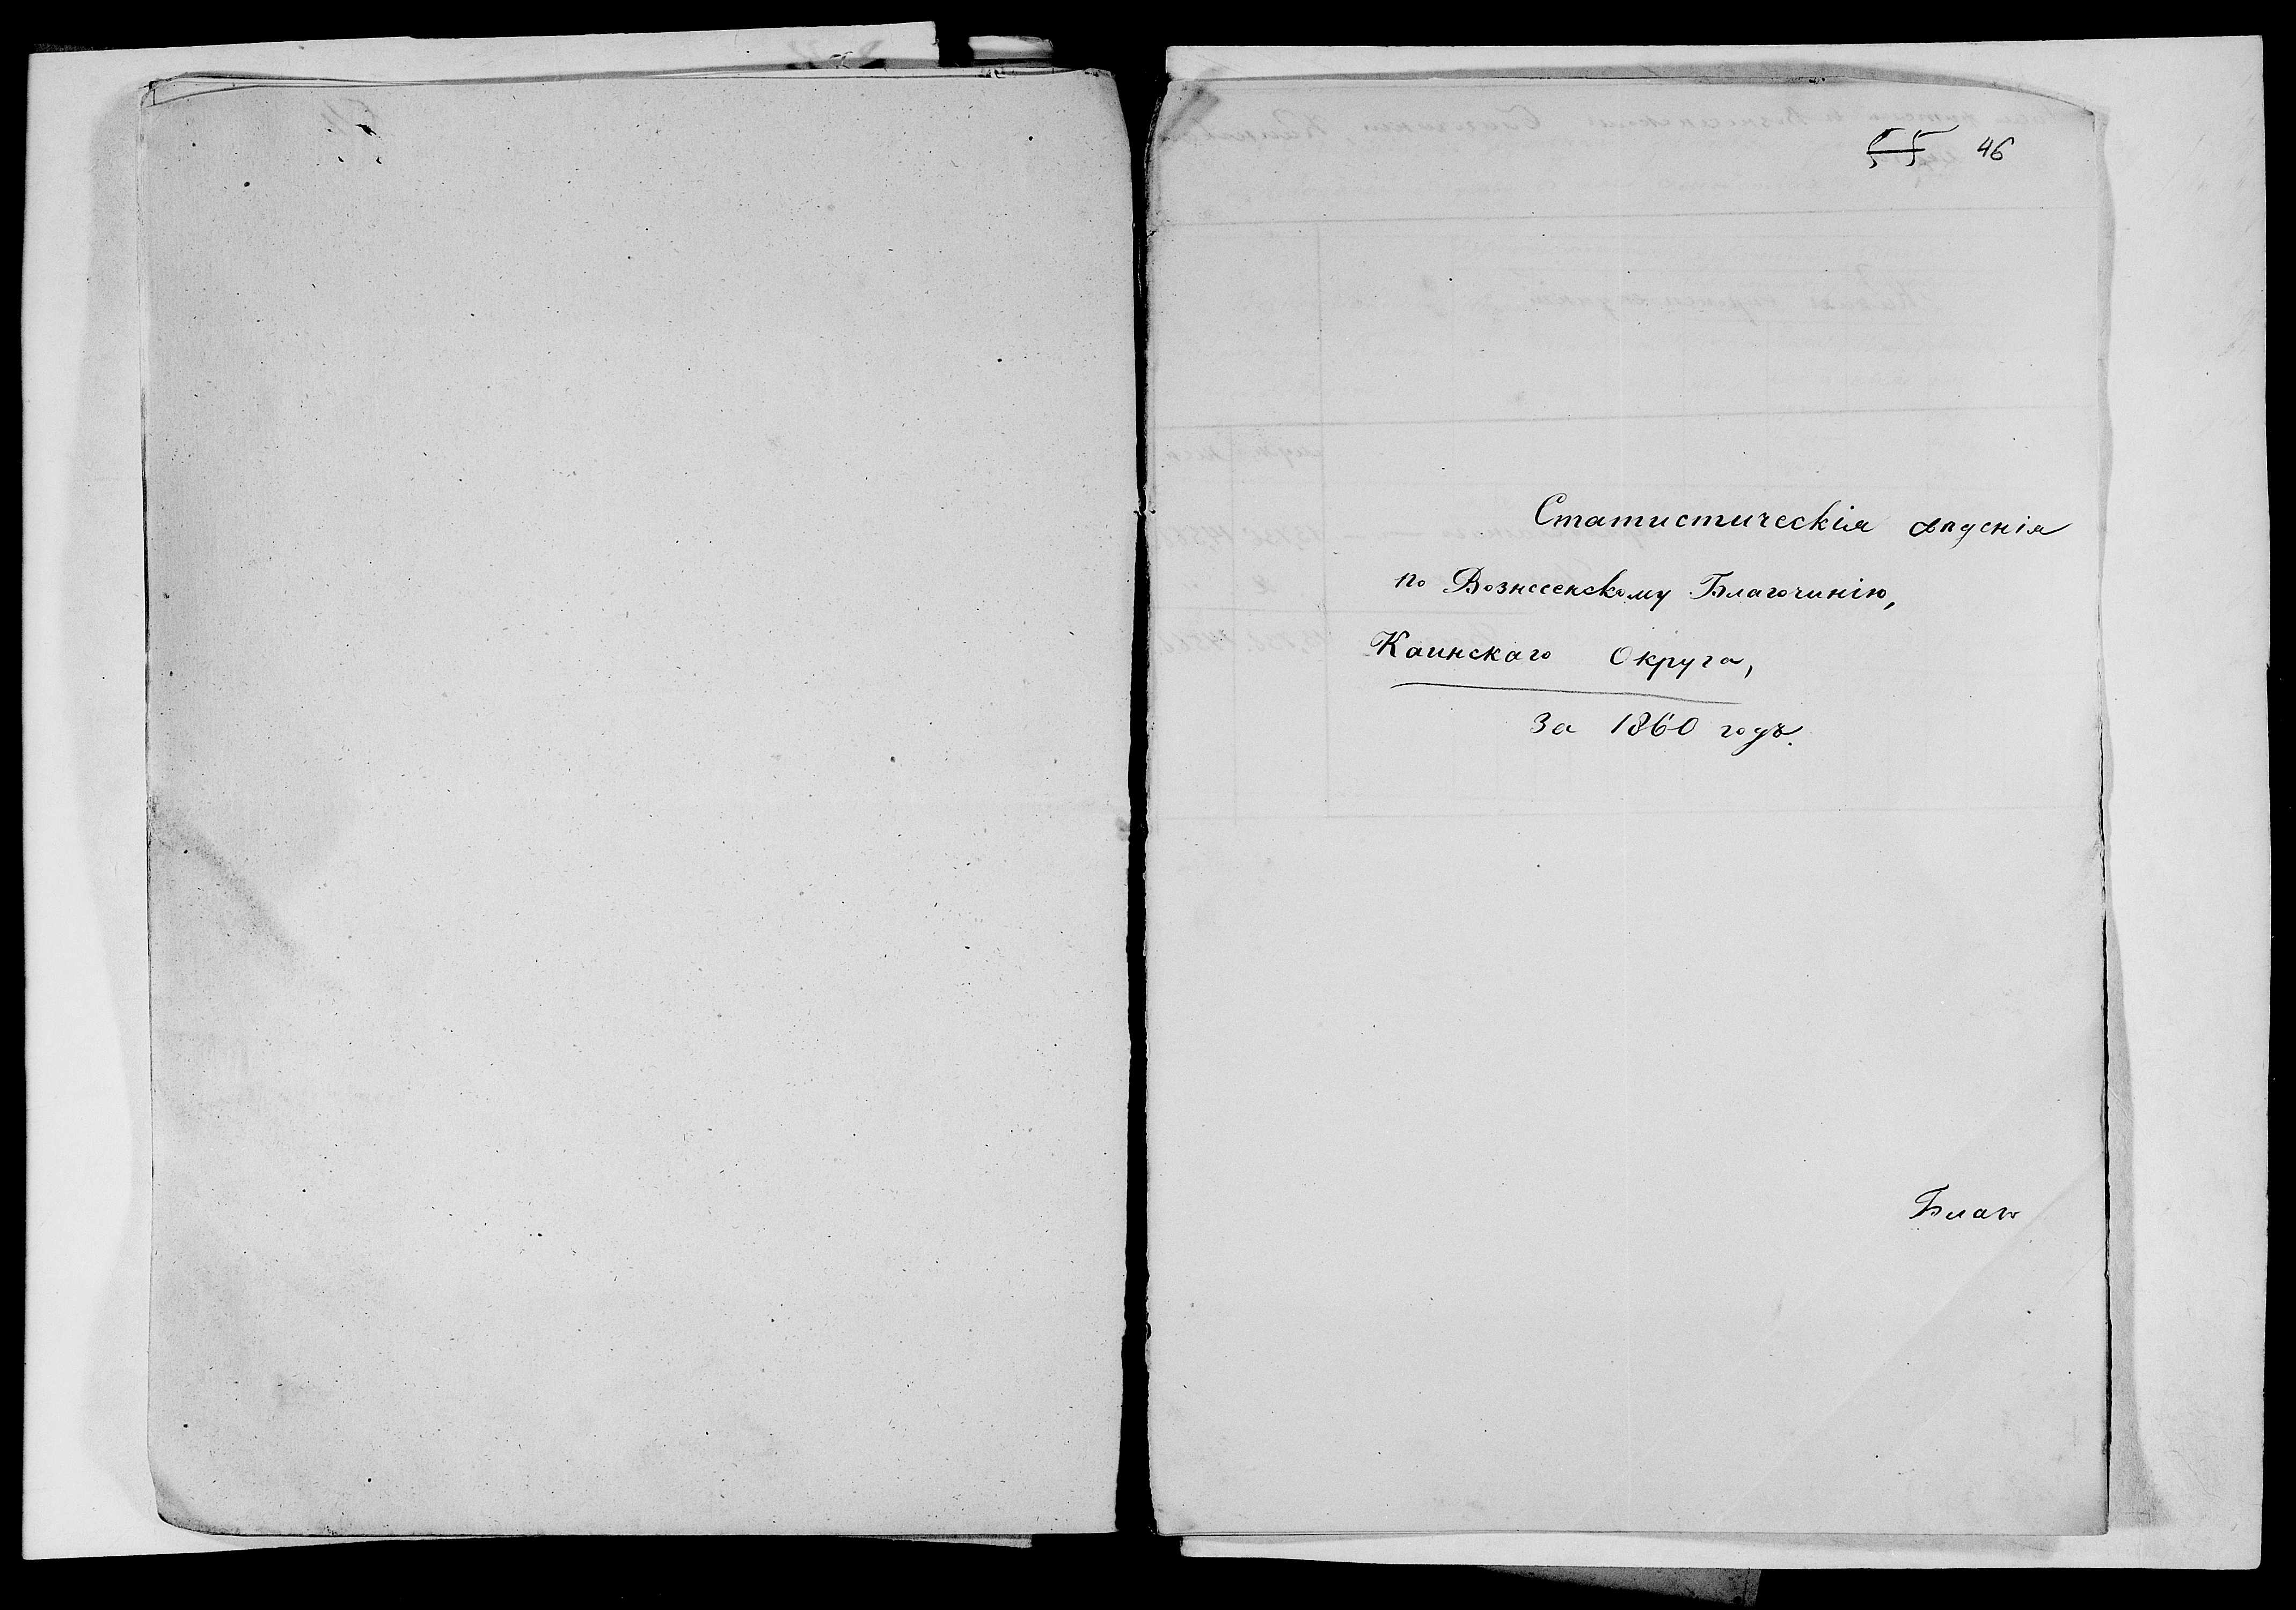 55 46
Статистическія свѣденія
по Вознесенскому Благочинію,
Каинскаго Округа,
За 1860 годъ.
Благо